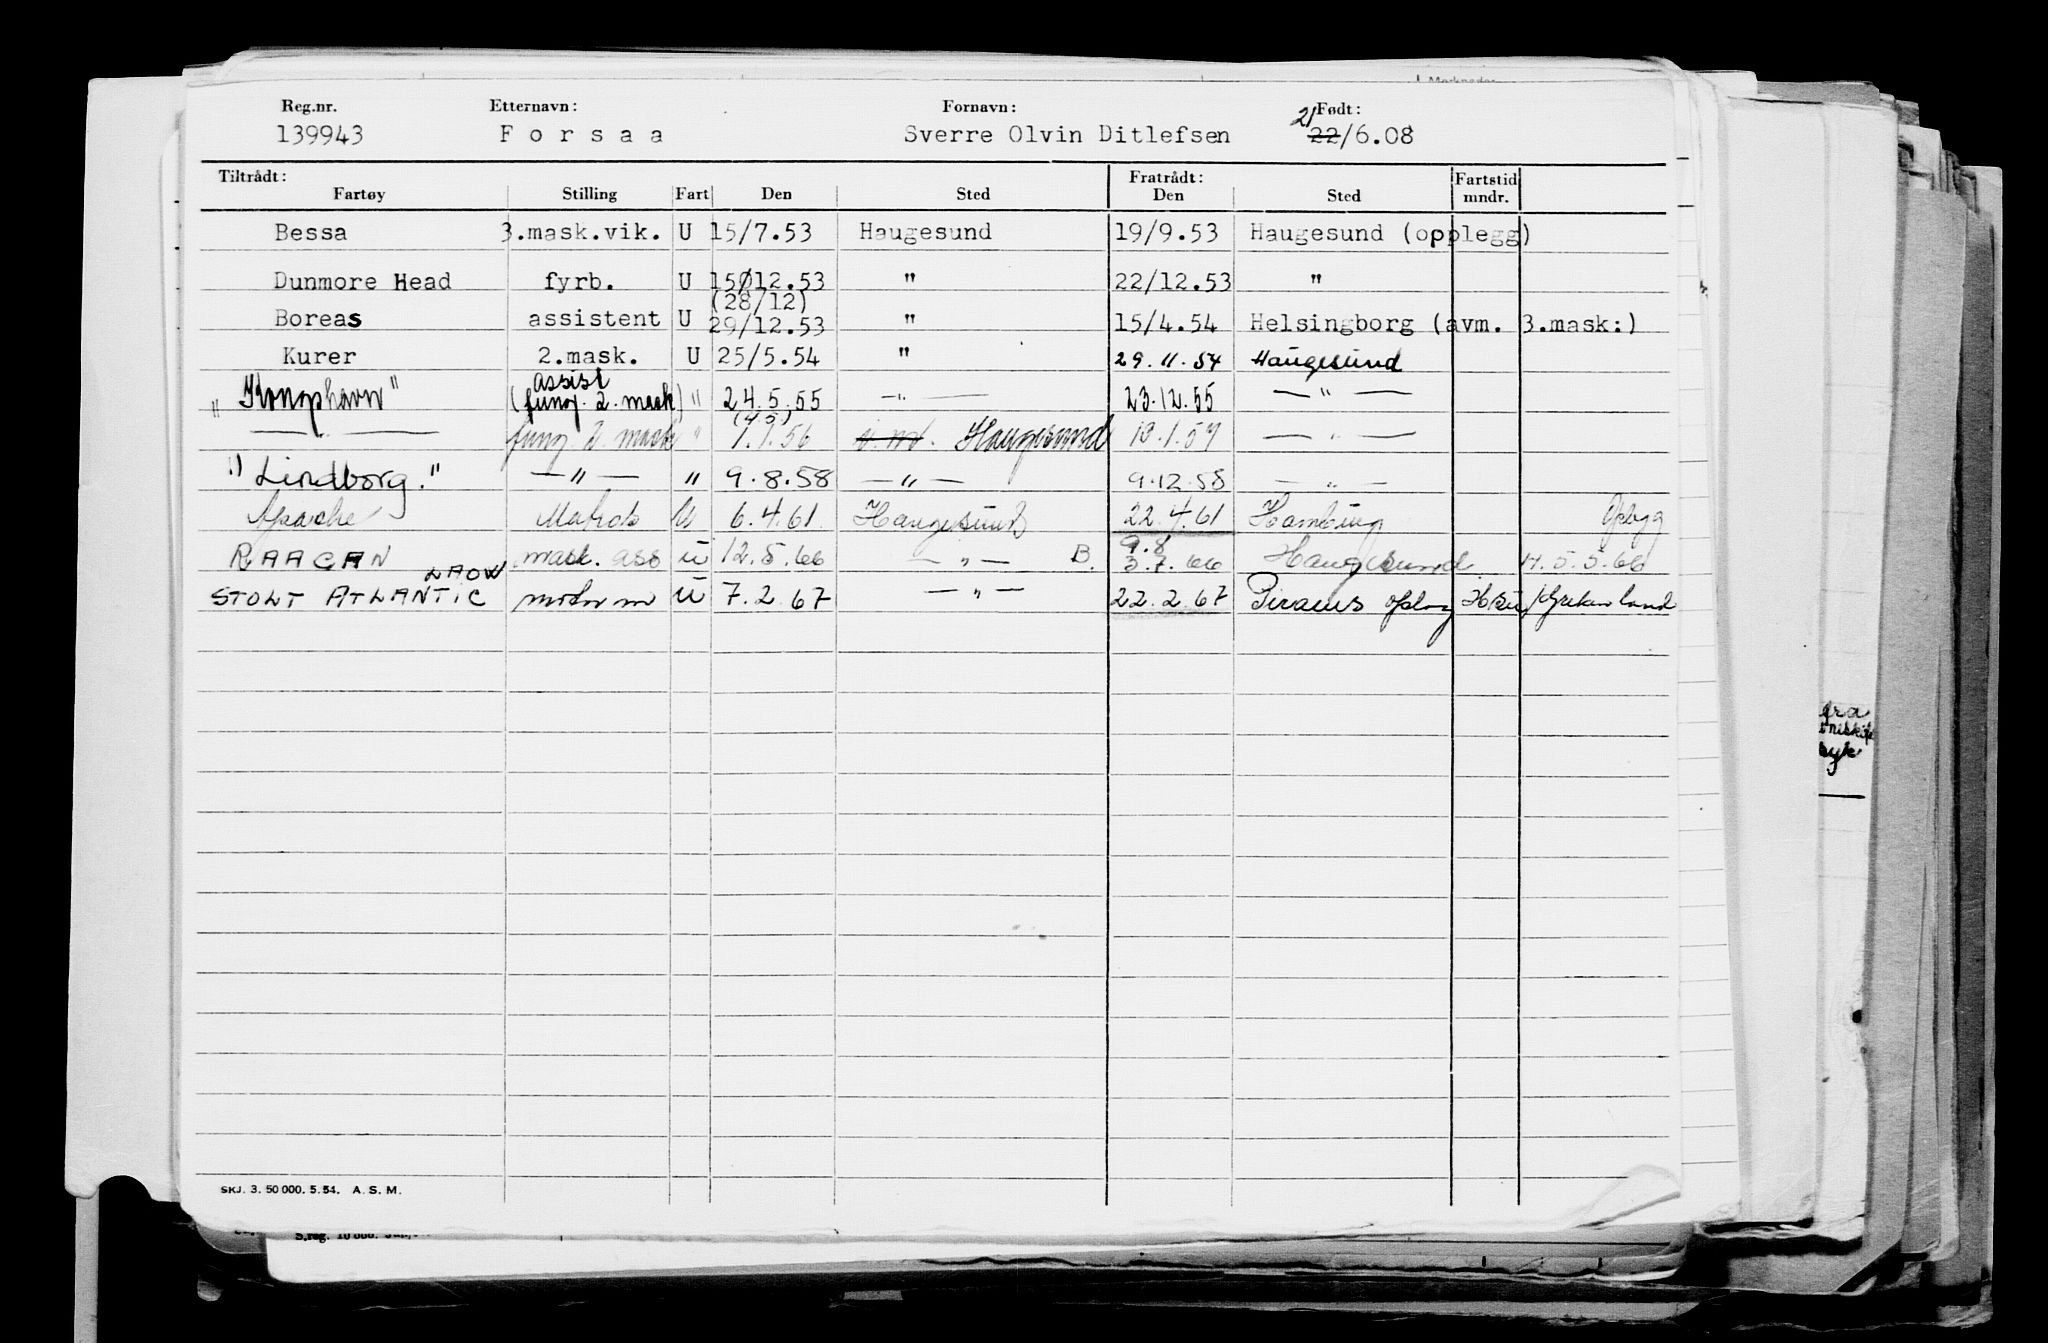 Reg.nr. Etternavn: Fornavn: Født:
139943 Forsaa Sverre Olvin Ditlefsen 21 22/6.08
Tiltrådt: Fratrådt: Fartstid
Fartøy Stilling Fart Den Sted Den Sted mndr.
Bessa 3.mask.vik. U 15/7.53 Haugesund 19/9.53 Haugesund (opplegg)
Dunmore Head fyrb. U 15Ø12.53 " 22/12.53 "
(28/12)
Boreas assistent U 29/12.53 " 15/4.54 Helsingborg (avm. 3.mask:)
Kurer 2.mask. U 25/5.54 " 29.11.54 Haugesund
assist
"Kongshavn" (fung. 2. mask) " 24.5.55 — " — 23.12.55 — " —
— fung. 2. mask " 1.1.56 Haugesund — " —
"Lindborg." — " — " 9.8.58 — " — 9.12.58 — " —
Apache Matros U 6.4.61 Haugesund 22.4.61 Hamburg
9.8
RAAGAN mask. ass U 12.5.66 — " — B. 3.7.66 Haugesund H. 5.5.66
LAOW
STOLT ATLANTIC motorm U 7.2.67 — " — 22.2.67 Piraeus
SKJ. 3. 50 000. 5. 54. A. S. M.
S.reg. 10 000.
fra
syk